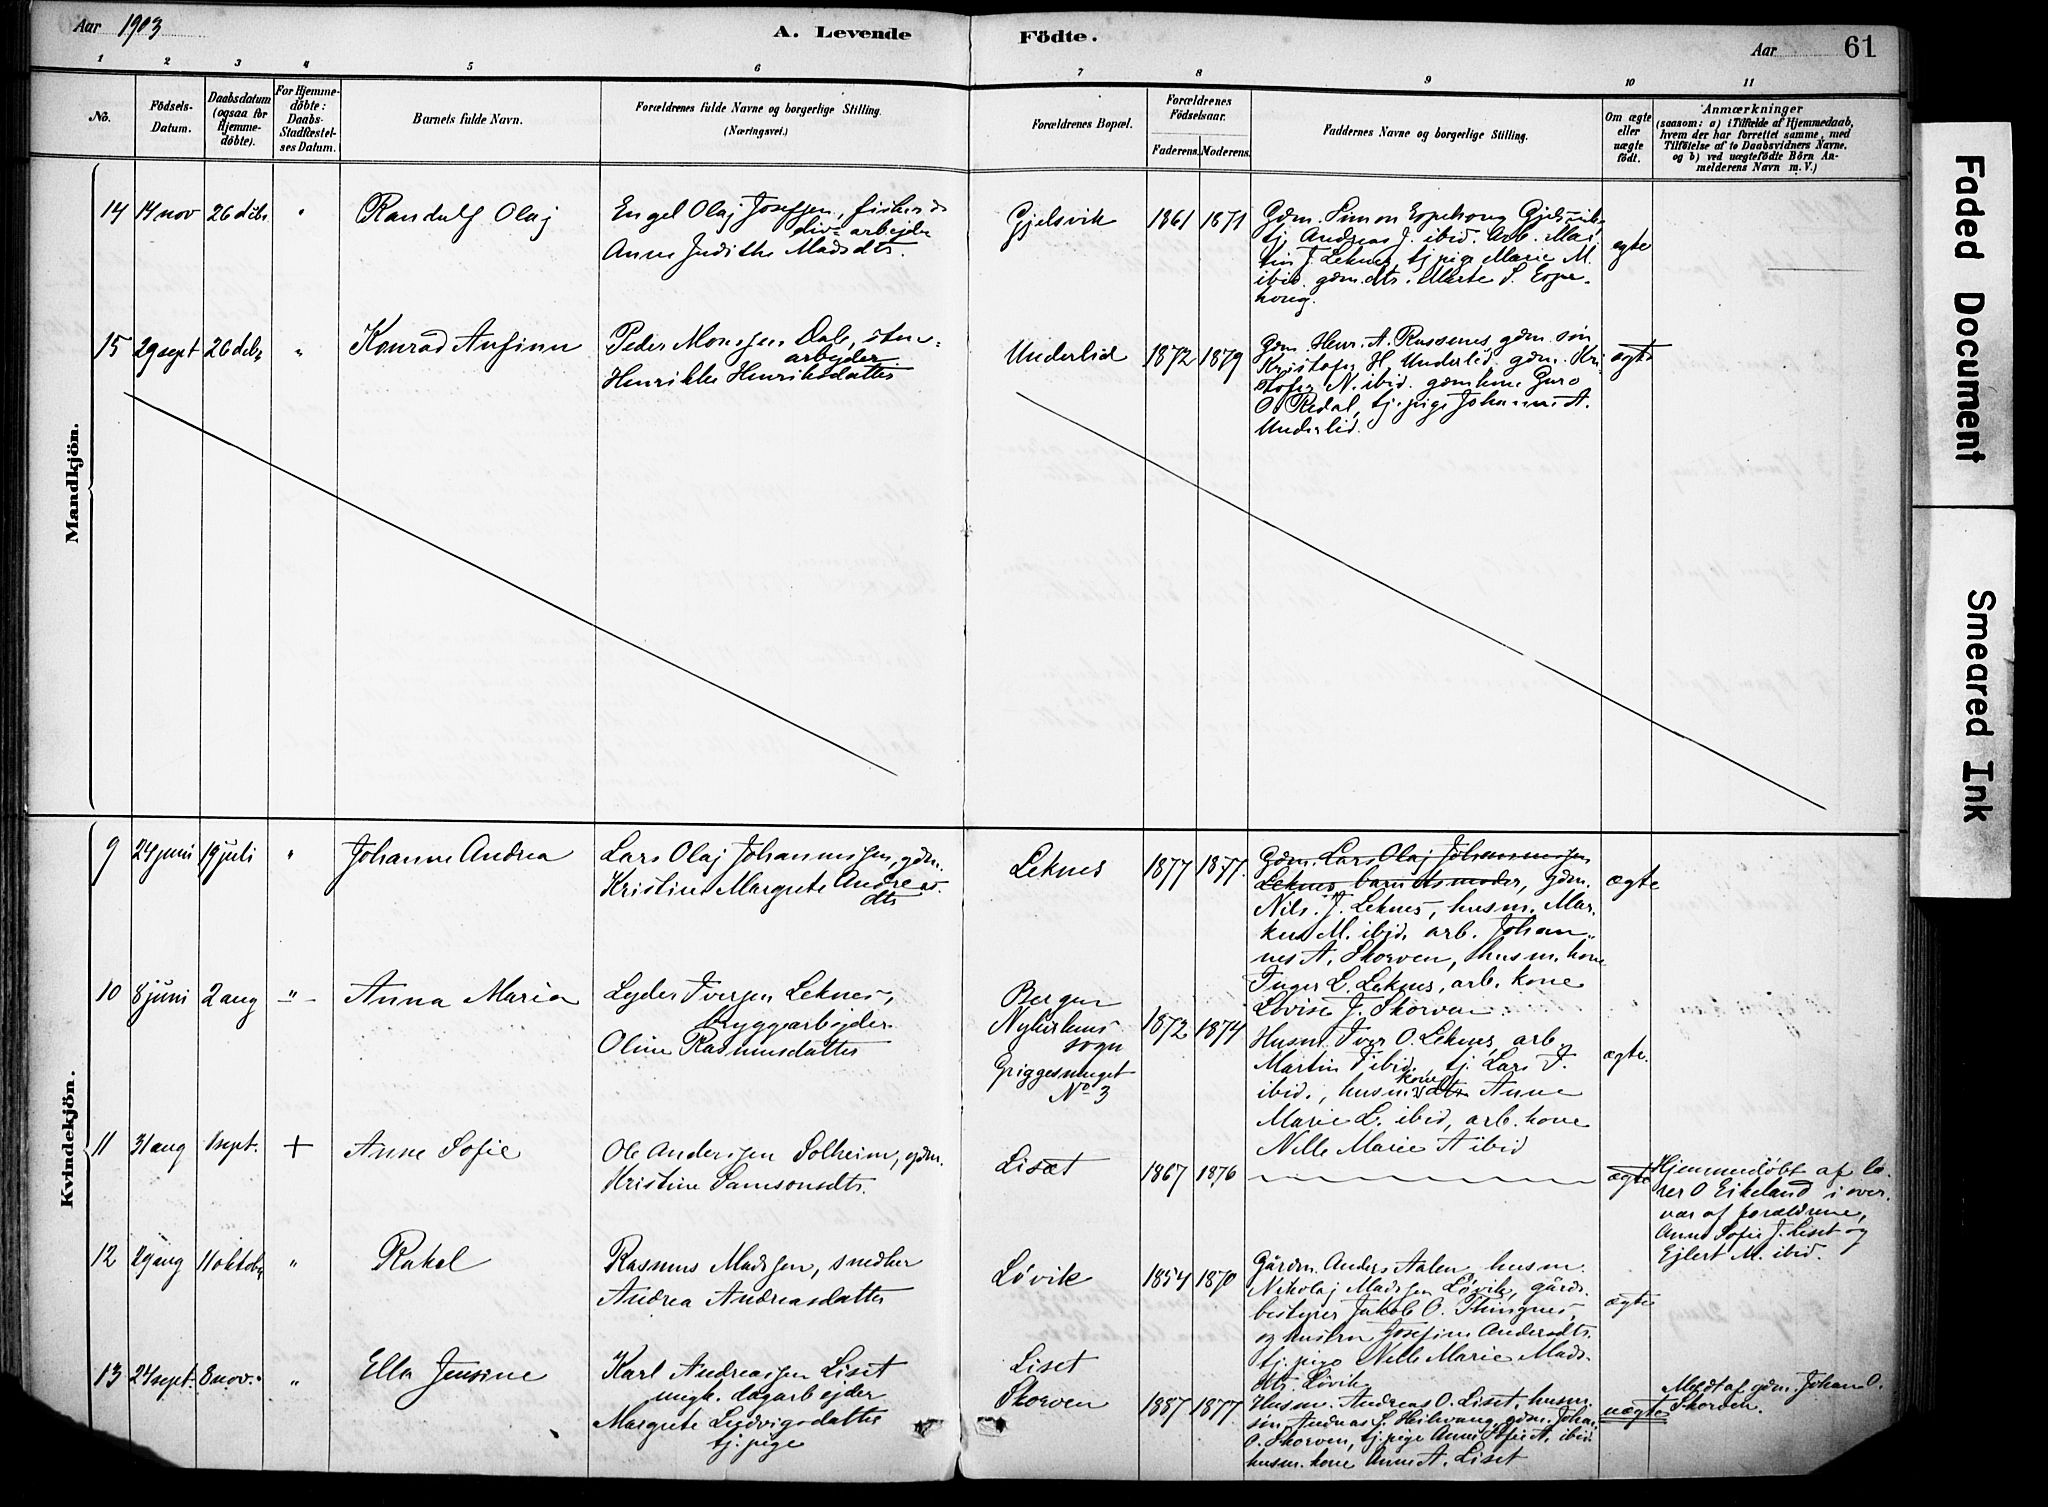 Aar 1903
A. Levende Födte.
Aar 61
1 2 3 4 5 6 7 8 9 10 11
No.
Födsels-
Datum.
Daabsdatum
(ogsaa for
Hjemme-
döbte).
For Hjemme-
döbte:
Daabs-
Stadfæstel-
ses Datum.
Barnets fulde Navn.
Forældrenes fulde Navne og borgerlige Stilling.
(Næringsvei.)
Forældrenes Bopæl.
Forældrenes
Födselsaar.
Faderens. Moderens.
Faddernes Navne og borgerlige Stilling.
Om ægte
eller
uægte
födt.
Anmærkninger
(saasom: a) i Tilfælde af Hjemmedaab,
hvem der har forrettet samme, med
Tilföielse af to Daabsvidners Navne.
og b) ved uægtefödte Börn An-
melderens Navn m. V.)
Mandkjön.
14 14 nov 26 debr " Randulf Olaf
Engel Olaf Josefsen, fisker &
div. arbejder
Anne Judithe Madsdtr.
Gjelsvik 1861 1871
Gdm. Simon Espehoug Gjelsvik,
tj. Andreas J. ibid. Arb. Mar-
tin J. Leknes, tj. pige Marie M.
ibid. gdm.dtr. Marte S. Espe-
houg.
ægte
15 29 sept 26 debr " Konrad Anfinn
Peder Monssen Dale, sten-
arbejder
Henrikke Henriksdatter
Underlid 1872 1879
Gdm. Henr. A. Russenes, gdm. søn
Kristofer H. Underlid. gdm. Kri-
stofer N. ibid. gdm kone Guro
O. Redal, tj. pige Johanne A.
Underlid.
ægte
Kvindekjön.
9 24 juni 19 juli " Johanne Andrea
Lars Olaf Johannessen, gdm.
Kristine Margrete Andreas
dtr
Leknes 1877 1877.
Gdm. Lars Olaf Johannessen
Leknes, barnets moder, gdm.
Nils. J. Leknes, husm. Mar-
kus M. ibid. arb. Johan-
nes A. Skorven, husm. kone
Inger L. Leknes, arb. kone
Lovise J. Skorven.
ægte
10 8 juni 2 aug " Anna Maria
Lyder Iversen Leknes,
bryggearbejder
Oline Rasmusdatter
Bergen
Nykirkens
sogn
Griggesmuget
No 3
1872 1874
Husm. Iver O. Leknes, arb.
Martin I. ibid., tj. Lars I.
ibid., husm. kone dtr. Anne
Marie L. ibid, arb. kone
Nille Marie A ibid
ægte.
11 31 aug 1 sept. + Anne Sofie
Ole Anderssen Solheim, gdm.
Kristine Samsonsdtr.
Liset 1867 1876
ægte
Hjemmedøbt af læ-
rer O Eikeland i over-
vær af forældrene,
Anne Sofie J. Liset og
Ejlert M. ibid.
12 29 aug 11 oktober " Rakel
Rasmus Madssen, snedker
Andrea Andreasdatter
Løvik 1854 1870
Gårdm. Anders Aalen, husm.
Nikolaj Madssen Løvik, gårds-
bestyrer Jakob O. Thingnes,
og hustru Josefine Andersdtr.
tj. pige Nille Marie Mads-
dtr. Løvik
ægte
13 24 sept. 8 nov. " Ella Jensine
Karl Andreassen Liset
ungk. dagarbejder
Margrete Ludvigsdatter
tj. pige
Liset
Skorven 1887 1877
Husm. Andreas O. Liset, husm.
søn Andreas L. Heilevang, gdm. Johan
O. Skorven, tj. pige Anne Sofie A. ibid.
husm. kone Anne A. Liset
uægte
Meldt af gdm. Johan O.
Skorven.
Faded Document
Smeared Ink